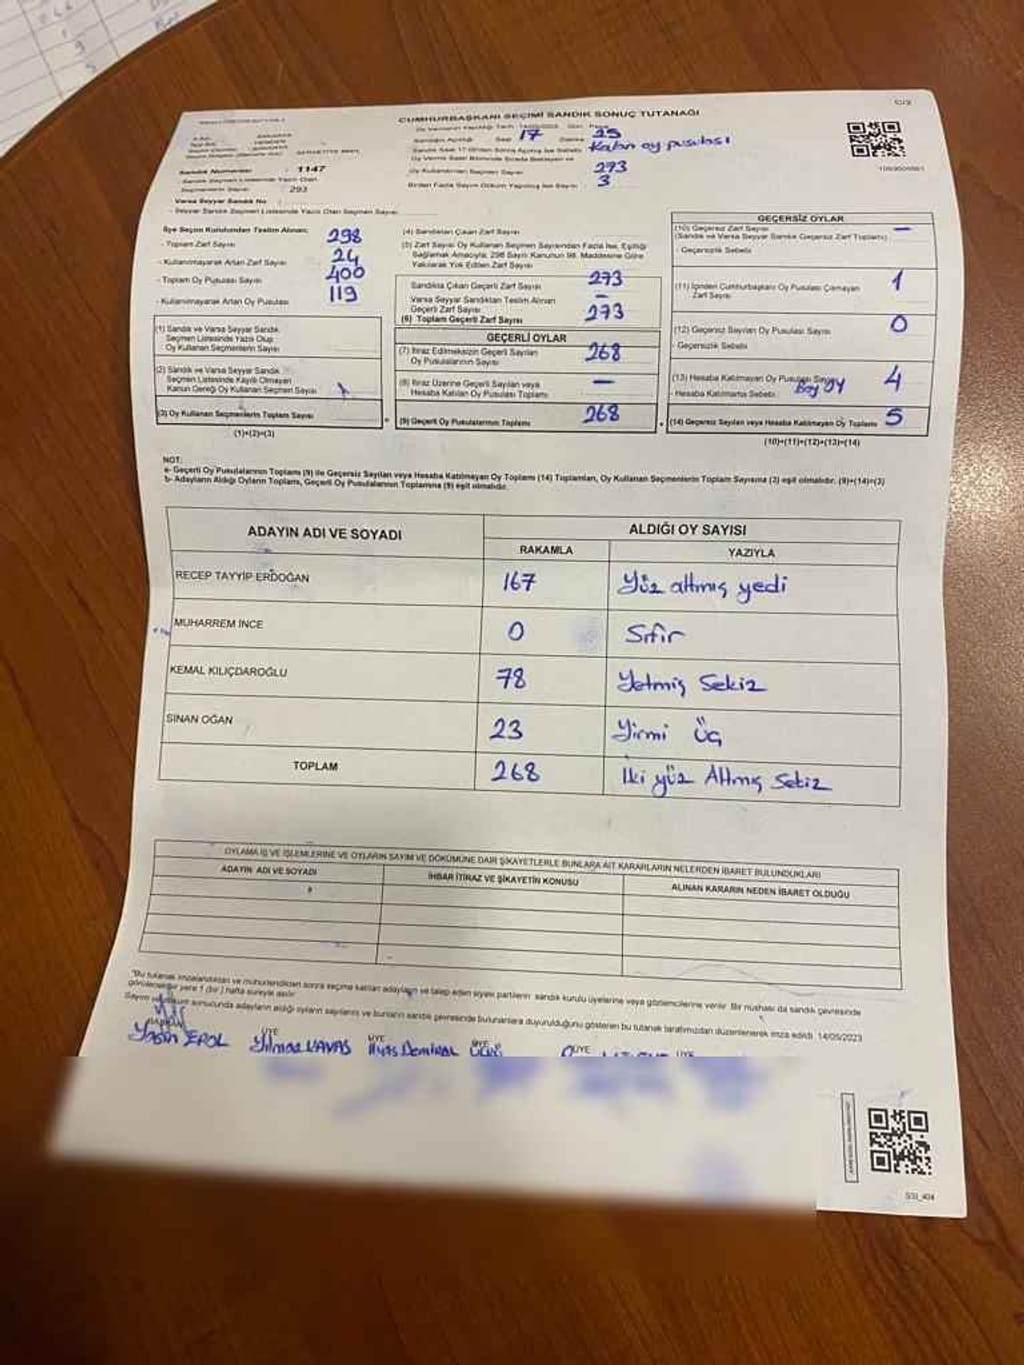 C/2
CUMHURBAŞKANI SEÇİMİ SANDIK SONUÇ TUTANAĞI
17 25
Kalan oy pusulası
Oy Kullanılan Seçmen Sayısı 293
3
1093000961
Sandık Numarası : 1147
Sandık Seçmen Listesinde Yazılı Olan
Seçmenlerin Sayısı : 293
Varsa Seyyar Sandık No
- Seyyar Sandık Seçmen Listesinde Yazılı Olan Seçmen Sayısı
İlçe Seçim Kurulundan Teslim Alınan:
- Toplam Zarf Sayısı 298
- Kullanılmayarak Artan Zarf Sayısı 24
- Toplam Oy Pusulası Sayısı 400
- Kullanılmayarak Artan Oy Pusulası 119
(1) Sandık ve Varsa Seyyar Sandık
Seçmen Listesinde Yazılı Olup
Oy Kullanan Seçmenlerin Sayısı
(2) Sandık ve Varsa Seyyar Sandık
Seçmen Listesinde Kayıtlı Olmayan
Kanun Gereği Oy Kullanan Seçmen Sayısı
(3) Oy Kullanan Seçmenlerin Toplam Sayısı
(1)+(2)=(3)
(4) Sandıktan Çıkan Zarf Sayısı
(5) Zarf Sayısı Oy Kullanan Seçmen Sayısından Fazla ise, Eşitliği
Sağlamak Amacıyla; 298 Sayılı Kanunun 98. Maddesine Göre
Yakılarak Yok Edilen Zarf Sayısı
Sandıkta Çıkan Geçerli Zarf Sayısı 273
Varsa Seyyar Sandıktan Teslim Alınan
Geçerli Zarf Sayısı —
(6) Toplam Geçerli Zarf Sayısı 273
GEÇERLİ OYLAR
(7) İtiraz Edilmeksizin Geçerli Sayılan
Oy Pusulalarının Sayısı 268
(8) İtiraz Üzerine Geçerli Sayılan veya
Hesaba Katılan Oy Pusulası Toplamı —
(9) Geçerli Oy Pusulalarının Toplamı 268
GEÇERSİZ OYLAR
(10) Geçersiz Zarf Sayısı —
(Sandık ve Varsa Seyyar Sandık Geçersiz Zarf Toplamı)
- Geçersizlik Sebebi
(11) İçinden Cumhurbaşkanı Oy Pusulası Çıkmayan
Zarf Sayısı 1
(12) Geçersiz Sayılan Oy Pusulası Sayısı 0
- Geçersizlik Sebebi
(13) Hesaba Katılmayan Oy Pusulası Sayısı 4
- Hesaba Katılmama Sebebi Boş oy
(14) Geçersiz Sayılan veya Hesaba Katılmayan Oy Toplamı 5
(10)+(11)+(12)+(13)=(14)
NOT:
a- Geçerli Oy Pusulalarının Toplamı (9) ile Geçersiz Sayılan veya Hesaba Katılmayan Oy Toplamı (14) Toplamları, Oy Kullanan Seçmenlerin Toplam Sayısına (3) eşit olmalıdır. (9)+(14)=(3)
b- Adayların Aldığı Oyların Toplamı, Geçerli Oy Pusulalarının Toplamına (9) eşit olmalıdır.
ADAYIN ADI VE SOYADI ALDIĞI OY SAYISI
RAKAMLA YAZIYLA
RECEP TAYYİP ERDOĞAN 167 Yüz altmış yedi
MUHARREM İNCE 0 Sıfır
KEMAL KILIÇDAROĞLU 78 Yetmiş Sekiz
SİNAN OĞAN 23 Yirmi Üç
TOPLAM 268 İki yüz Altmış Sekiz
OYLAMA İŞ VE İŞLEMLERİNE VE OYLARIN SAYIM VE DÖKÜMÜNE DAİR ŞİKAYETLERLE BUNLARA AİT KARARLARIN NELERDEN İBARET BULUNDUKLARI
ADAYIN ADI VE SOYADI İHBAR İTİRAZ VE ŞİKAYETİN KONUSU ALINAN KARARIN NEDEN İBARET OLDUĞU
"Bu tutanak imzalandıktan ve mühürlendikten sonra seçime katılan adayların ve talep eden siyasi partilerin sandık kurulu üyelerine veya gözlemcilerine verilir. Bir nüshası da sandık çevresinde
görülecek bir yere 1 (bir) hafta süreyle asılır.
Sayım ve döküm sonucunda adayların aldığı oyların sayılarını ve bunların sandık çevresinde bulunanlara duyurulduğunu gösteren bu tutanak tarafımızdan düzenlenerek imza edildi. 14/05/2023
BAŞKAN ÜYE ÜYE ÜYE ÜYE ÜYE
Yasin EROL Yılmaz YAVAŞ İlyas Demiral
SSİ_404